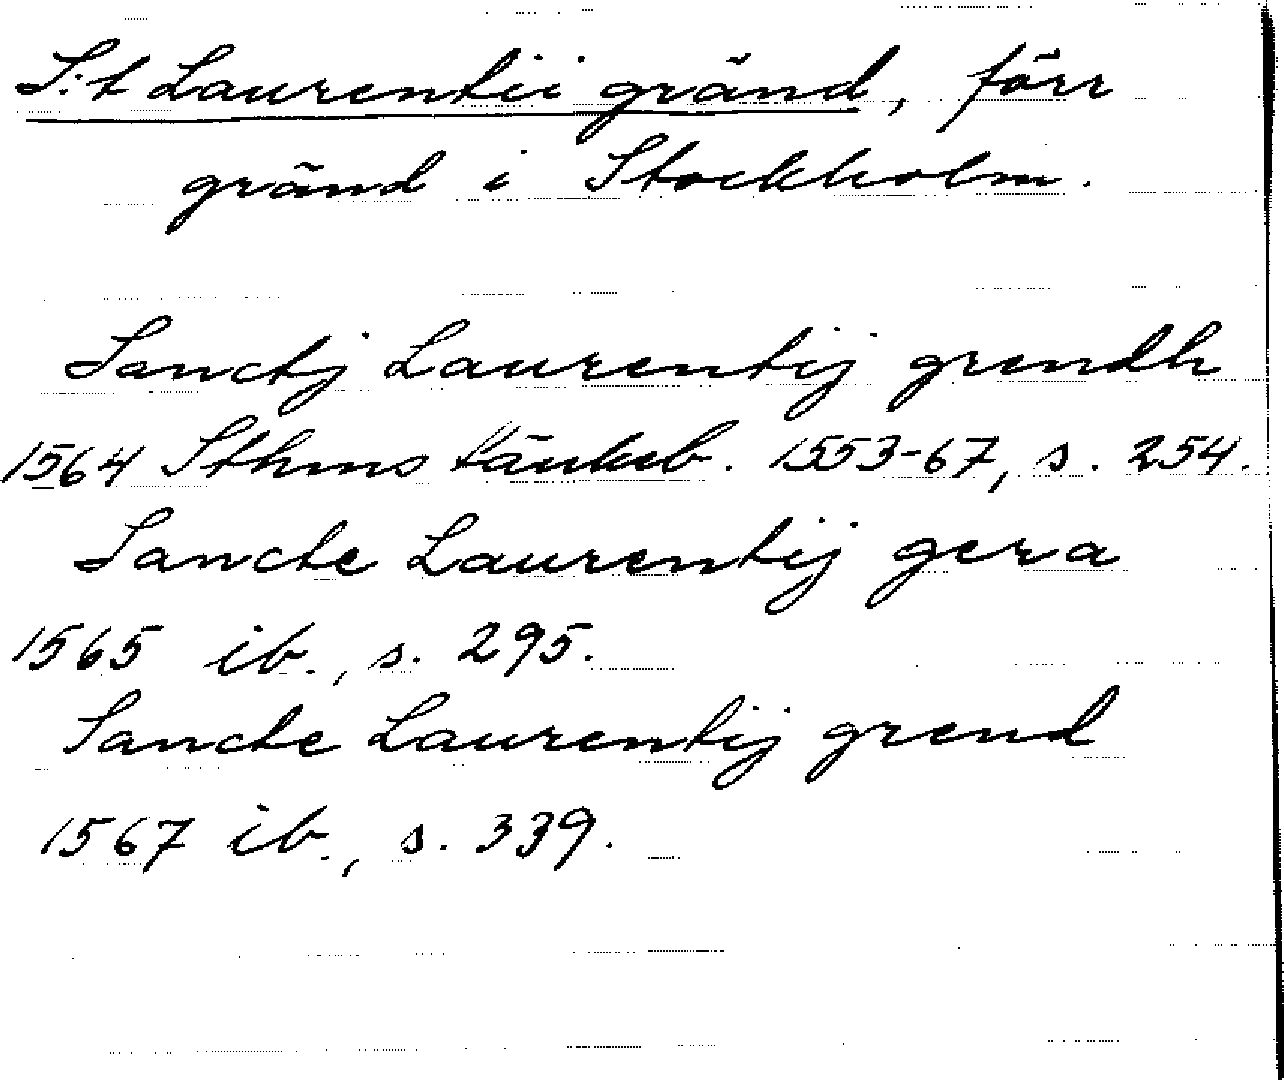 S:t Laurentii gränd, förr
gränd i Stockholm.
Sanctj Laurentij grendh
1564 Sthms tänkeb. 1553-67, s. 254.
Sancte Laurentij gera
1565 ib., s. 295.
Sancte Laurentij grend
1567 ib., s. 339.